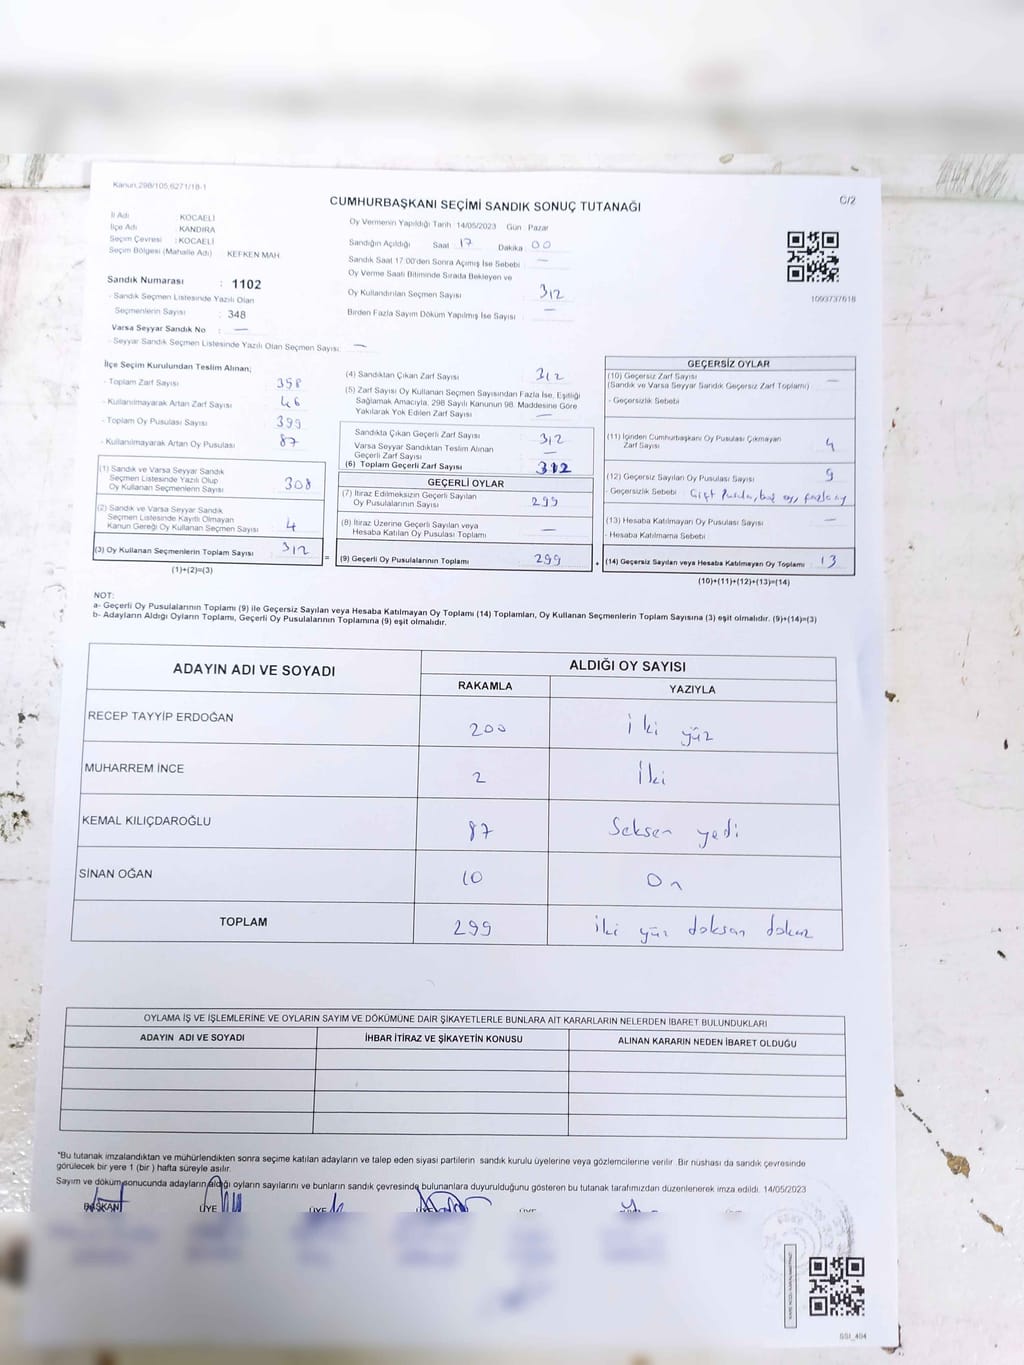 Kanun:298/105,6271/18-1
C/2
CUMHURBAŞKANI SEÇİMİ SANDIK SONUÇ TUTANAĞI
İl Adı KOCAELİ
İlçe Adı KANDIRA
Seçim Çevresi : KOCAELİ
Seçim Bölgesi (Mahalle Adı) KEFKEN MAH.
Sandık Numarası : 1102
- Sandık Seçmen Listesinde Yazılı Olan
Seçmenlerin Sayısı : 348
Varsa Seyyar Sandık No : —
- Seyyar Sandık Seçmen Listesinde Yazılı Olan Seçmen Sayısı: —
Oy Vermenin Yapıldığı Tarih :14/05/2023 Gün : Pazar
Sandığın Açıldığı Saat 17 Dakika : 00
Sandık Saat 17:00'den Sonra Açımış İse Sebebi : —
Oy Verme Saati Bitiminde Sırada Bekleyen ve
Oy Kullandırılan Seçmen Sayısı : 312
Birden Fazla Sayım Döküm Yapılmış İse Sayısı : —
1093737618
İlçe Seçim Kurulundan Teslim Alınan;
- Toplam Zarf Sayısı 358
- Kullanılmayarak Artan Zarf Sayısı : 46
- Toplam Oy Pusulası Sayısı : 399
- Kullanılmayarak Artan Oy Pusulası : 87
(1) Sandık ve Varsa Seyyar Sandık
Seçmen Listesinde Yazılı Olup
Oy Kullanan Seçmenlerin Sayısı : 308
(2) Sandık ve Varsa Seyyar Sandık
Seçmen Listesinde Kayıtlı Olmayan
Kanun Gereği Oy Kullanan Seçmen Sayısı : 4
(3) Oy Kullanan Seçmenlerin Toplam Sayısı : 312
(1)+(2)=(3)
=
(4) Sandıktan Çıkan Zarf Sayısı : 312
(5) Zarf Sayısı Oy Kullanan Seçmen Sayısından Fazla İse, Eşitliği
Sağlamak Amacıyla, 298 Sayılı Kanunun 98. Maddesine Göre
Yakılarak Yok Edilen Zarf Sayısı : —
Sandıkta Çıkan Geçerli Zarf Sayısı : 312
Varsa Seyyar Sandıktan Teslim Alınan
Geçerli Zarf Sayısı : —
(6) Toplam Geçerli Zarf Sayısı : 312
GEÇERLİ OYLAR
(7) İtiraz Edilmeksizin Geçerli Sayılan
Oy Pusulalarının Sayısı : 299
(8) İtiraz Üzerine Geçerli Sayılan veya
Hesaba Katılan Oy Pusulası Toplamı : —
(9) Geçerli Oy Pusulalarının Toplamı : 299
+
GEÇERSİZ OYLAR
(10) Geçersiz Zarf Sayısı : —
(Sandık ve Varsa Seyyar Sandık Geçersiz Zarf Toplamı)
- Geçersizlik Sebebi
(11) İçinden Cumhurbaşkanı Oy Pusulası Çıkmayan
Zarf Sayısı : 4
(12) Geçersiz Sayılan Oy Pusulası Sayısı : 9
- Geçersizlik Sebebi : Çift Pusula, boş oy, fazla oy
(13) Hesaba Katılmayan Oy Pusulası Sayısı : —
- Hesaba Katılmama Sebebi
(14) Geçersiz Sayılan veya Hesaba Katılmayan Oy Toplamı : 13
(10)+(11)+(12)+(13)=(14)
NOT:
a- Geçerli Oy Pusulalarının Toplamı (9) ile Geçersiz Sayılan veya Hesaba Katılmayan Oy Toplamı (14) Toplamları, Oy Kullanan Seçmenlerin Toplam Sayısına (3) eşit olmalıdır. (9)+(14)=(3)
b- Adayların Aldığı Oyların Toplamı, Geçerli Oy Pusulalarının Toplamına (9) eşit olmalıdır.
ADAYIN ADI VE SOYADI
ALDIĞI OY SAYISI
RAKAMLA YAZIYLA
RECEP TAYYİP ERDOĞAN 200 İki yüz
MUHARREM İNCE 2 İki
KEMAL KILIÇDAROĞLU 87 Seksen yedi
SİNAN OĞAN 10 On
TOPLAM 299 İki yüz doksan dokuz
OYLAMA İŞ VE İŞLEMLERİNE VE OYLARIN SAYIM VE DÖKÜMÜNE DAİR ŞİKAYETLERLE BUNLARA AİT KARARLARIN NELERDEN İBARET BULUNDUKLARI
ADAYIN ADI VE SOYADI İHBAR İTİRAZ VE ŞİKAYETİN KONUSU ALINAN KARARIN NEDEN İBARET OLDUĞU
"Bu tutanak imzalandıktan ve mühürlendikten sonra seçime katılan adayların ve talep eden siyasi partilerin sandık kurulu üyelerine veya gözlemcilerine verilir. Bir nüshası da sandık çevresinde
görülecek bir yere 1 (bir ) hafta süreyle asılır.
Sayım ve döküm sonucunda adayların aldığı oyların sayılarını ve bunların sandık çevresinde bulunanlara duyurulduğunu gösteren bu tutanak tarafımızdan düzenlenerek imza edildi. 14/05/2023
BAŞKAN ÜYE ÜYE ÜYE
SSI_404